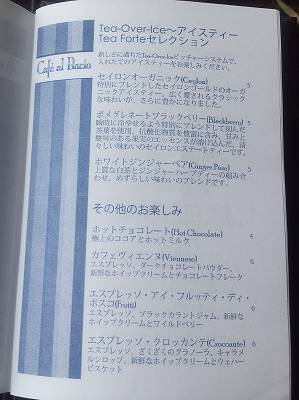 Tea-Over-Ice～アイスティー
Tea Forteセレクション
新しさに満ちたTea-Over-Iceピッチャーシステムで、
入れたてのアイスティーをお楽しみください。
Café al Bacio
セイロンオーガニック(Ceylon) 5
特別にブレンドしたセイロンゴールドのオーガ
ニックアイスティー。広く愛されるクラシック
な味わいが、さらに豊かになりました。
ポメグレネートブラックベリー(Blackberry) 5
瞬時に冷やせるよう特別にブレンドして刻んだ
茶葉を使用。抗酸化物質を豊富に含み、甘みと
酸味のある果実のエッセンスが溶け込んだ、清々
しい味わいのセイロンエステートティーです。
ホワイトジンジャーペア(Ginger Pear) 5
上質な白茶とジンジャーハーブティーの組み合
わせ。めずらしい味わいのブレンドです。
その他のお楽しみ
ホットチョコレート(Hot Chocolate) 4
極上のココアとホットミルク
カフェヴィエンヌ(Viennese) 6
エスプレッソ、ダークチョコレートパウダー、
新鮮なホイップクリームとチョコレートフレーク
エスプレッソ・アイ・フルッティ・ディ・
ボスコ(Frutti) 6
エスプレッソ、ブラックカラントジャム、新鮮な
ホイップクリームとワイルドベリー
エスプレッソ・クロッカンテ(Croccante) 6
エスプレッソ、ざくざくのグラノーラ、キャラメ
ルシロップ、新鮮なホイップクリームとウェハー
ビスケット